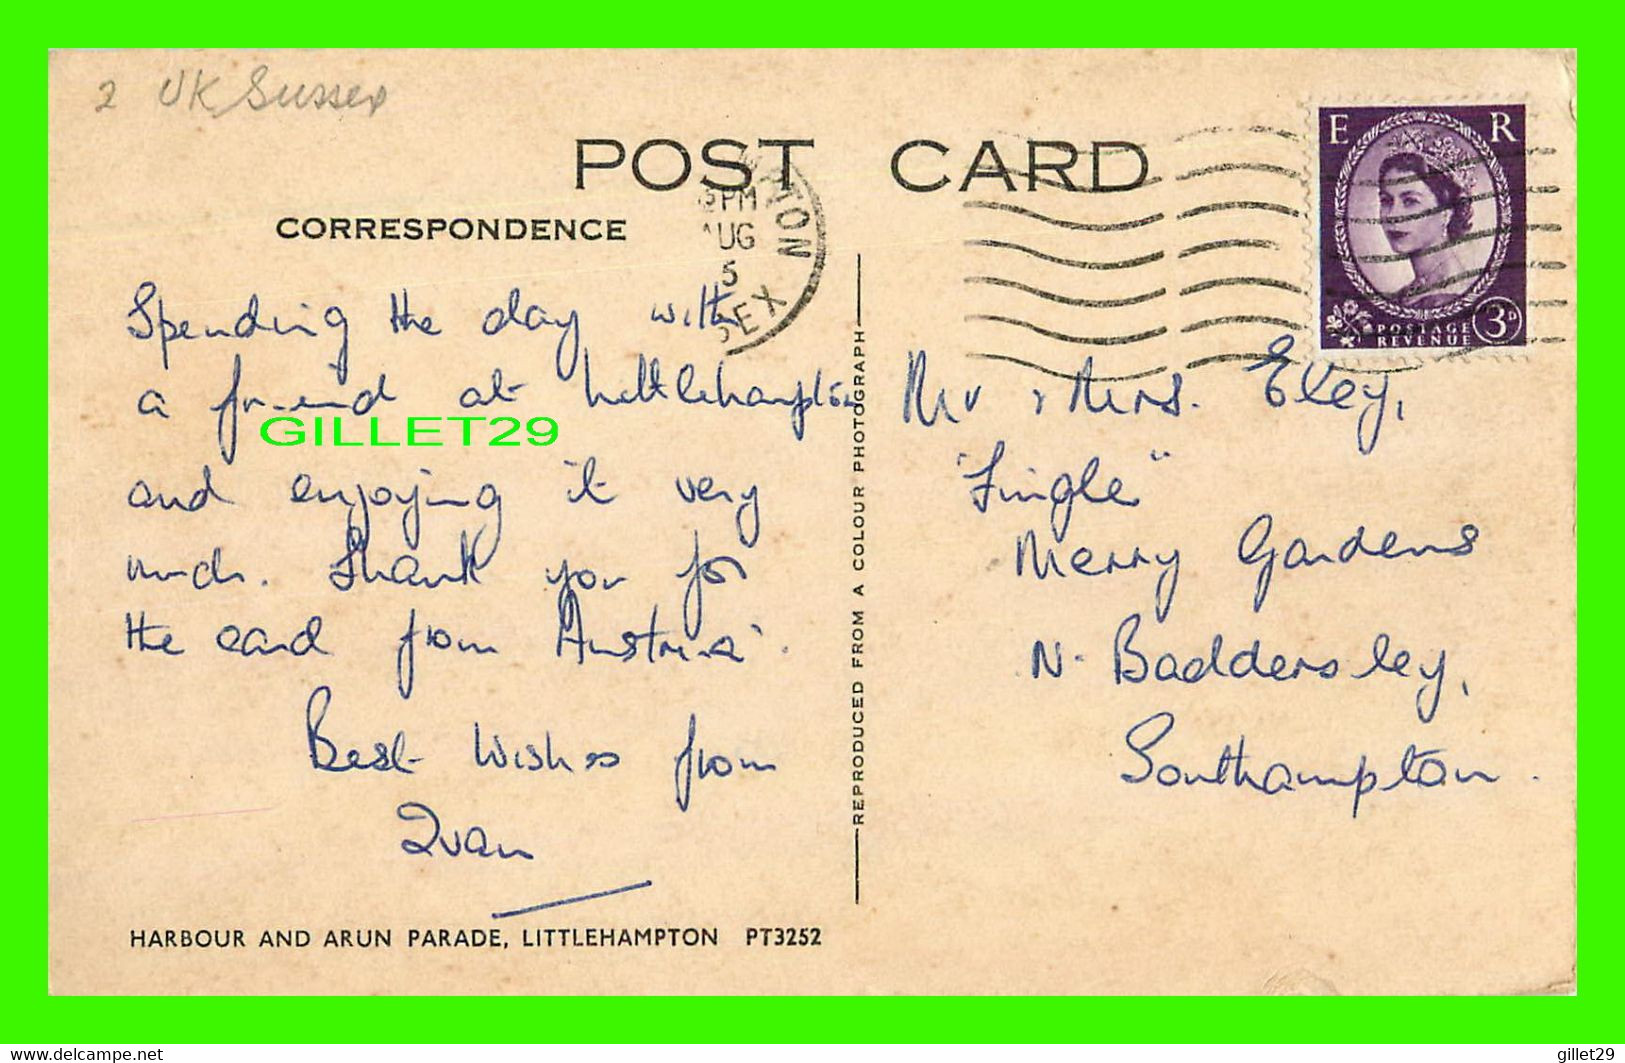 2 UK Sussex
POST CARD
CORRESPONDENCE
PM
AUG
5
E R
POSTAGE
REVENUE
3D
Spending the day with
a friend at Littlehampton
and enjoying it very
much. Thank you for
the card from Austria.
Best Wishes from
GILLET29
Mr & Mrs. Eley,
"Fingle"
Merry Gardens
N. Baddersley,
Southampton.
REPRODUCED FROM A COLOUR PHOTOGRAPH
HARBOUR AND ARUN PARADE, LITTLEHAMPTON PT3252
delcampe.net
gillet29